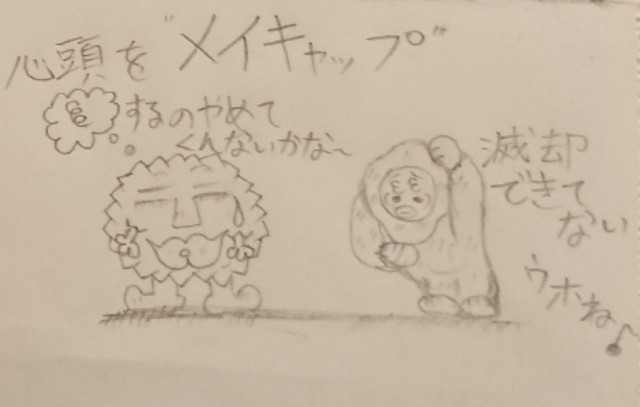 心頭を"メイキャップ"
するのやめて
くんないかな〜
滅却
できて
ない
ウホね♪